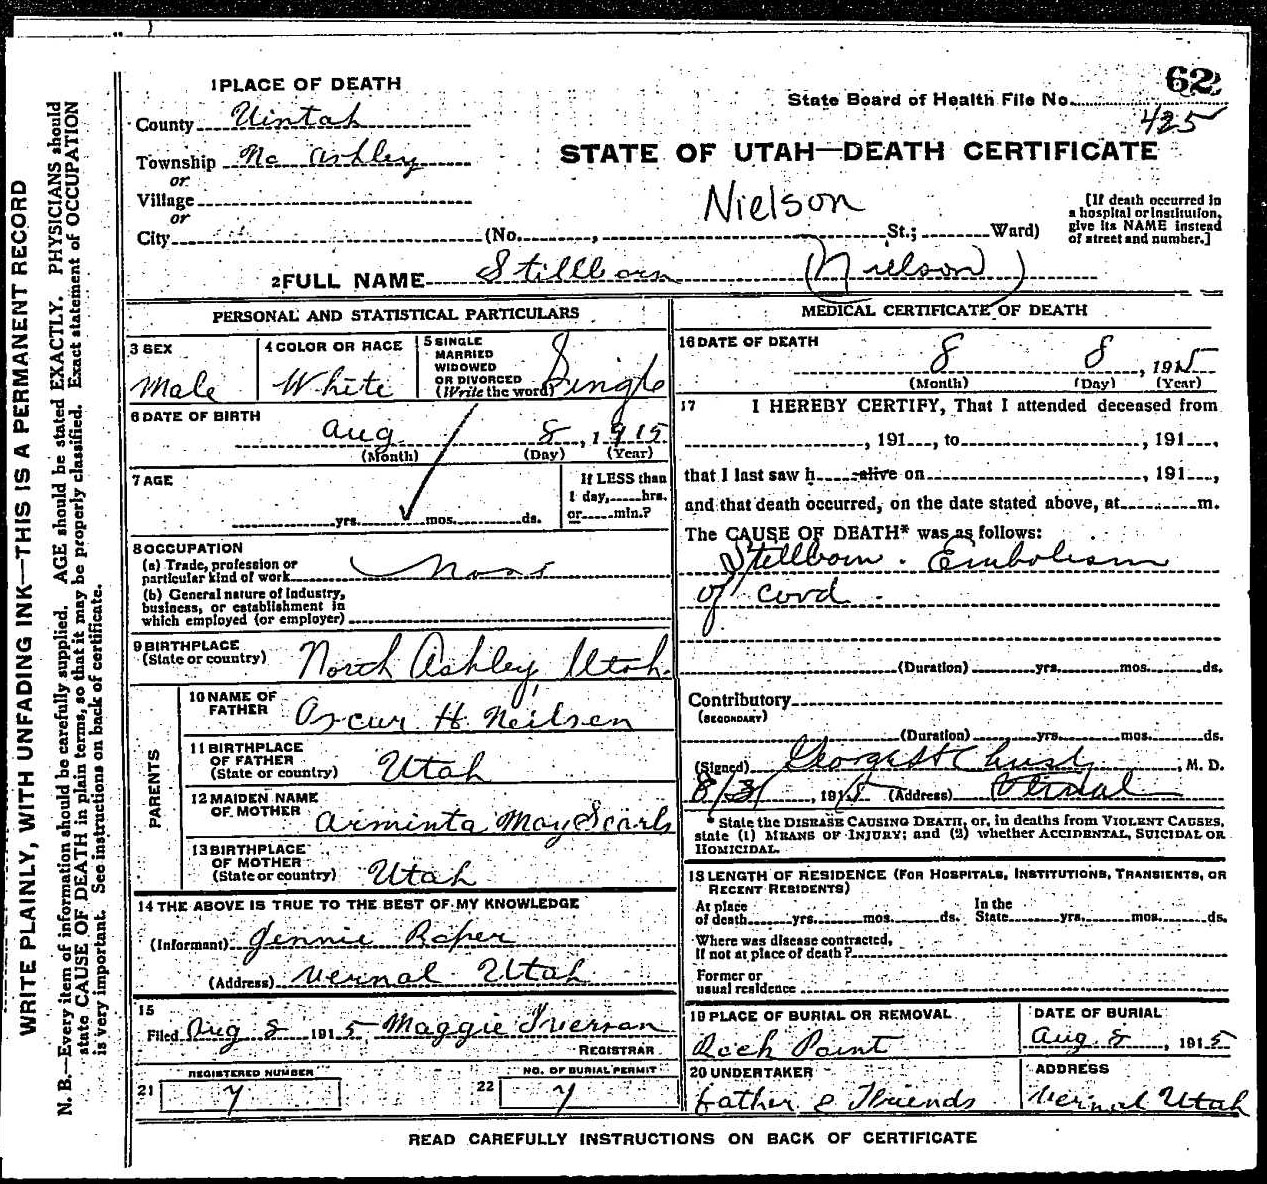 62
1 PLACE OF DEATH
State Board of Health File No.
425
County Uintah
Township No Ashley
STATE OF UTAH—DEATH CERTIFICATE
or
Village
or
City
(No. , St.; Ward)
Nielson
[If death occurred in
a hospital or institution,
give its NAME instead
of street and number.]
2 FULL NAME Stillborn (Nielson)
PERSONAL AND STATISTICAL PARTICULARS
3 SEX
Male
4 COLOR OR RACE
White
5 SINGLE
MARRIED
WIDOWED
OR DIVORCED
(Write the word)
Single
6 DATE OF BIRTH
Aug 8, 1915
(Month) (Day) (Year)
7 AGE
yrs. mos. ds.
If LESS than
1 day, hrs.
or min.?
8 OCCUPATION
(a) Trade, profession or
particular kind of work None
(b) General nature of industry,
business, or establishment in
which employed (or employer)
9 BIRTHPLACE
(State or country) North Ashley, Utah.
PARENTS
10 NAME OF
FATHER Oscar H. Neilsen
11 BIRTHPLACE
OF FATHER
(State or country) Utah
12 MAIDEN NAME
OF MOTHER Arminta May Searls
13 BIRTHPLACE
OF MOTHER
(State or country) Utah
14 THE ABOVE IS TRUE TO THE BEST OF MY KNOWLEDGE
(Informant) Jennie Roper
(Address) Vernal Utah
15
Filed Aug 8 1915, Maggie
REGISTRAR
REGISTERED NUMBER
21 7
NO. OF BURIAL PERMIT
22 7
MEDICAL CERTIFICATE OF DEATH
16 DATE OF DEATH
8 8, 1915
(Month) (Day) (Year)
17 I HEREBY CERTIFY, That I attended deceased from
, 191 , to , 191 ,
that I last saw h alive on , 191 ,
and that death occurred, on the date stated above, at m.
The CAUSE OF DEATH* was as follows:
Stillborn. Embolism
of cord.
(Duration) yrs. mos. ds.
Contributory
(SECONDARY)
(Duration) yrs. mos. ds.
(Signed) George H , M. D.
8/31, 1915 (Address) Vernal
* State the DISEASE CAUSING DEATH, or, in deaths from VIOLENT CAUSES,
state (1) MEANS OF INJURY; and (2) whether ACCIDENTAL, SUICIDAL OR
HOMICIDAL.
18 LENGTH OF RESIDENCE (FOR HOSPITALS, INSTITUTIONS, TRANSIENTS, OR
RECENT RESIDENTS)
At place In the
of death yrs. mos. ds. State yrs. mos. ds.
Where was disease contracted,
If not at place of death?
Former or
usual residence
19 PLACE OF BURIAL OR REMOVAL
Rock Point
DATE OF BURIAL
Aug. 8, 1915
20 UNDERTAKER
Father & Friends
ADDRESS
Vernal Utah
READ CAREFULLY INSTRUCTIONS ON BACK OF CERTIFICATE
WRITE PLAINLY, WITH UNFADING INK—THIS IS A PERMANENT RECORD
N. B.—Every item of information should be carefully supplied. AGE should be stated EXACTLY. PHYSICIANS should
state CAUSE OF DEATH in plain terms, so that it may be properly classified. Exact statement of OCCUPATION
is very important. See instructions on back of certificate.